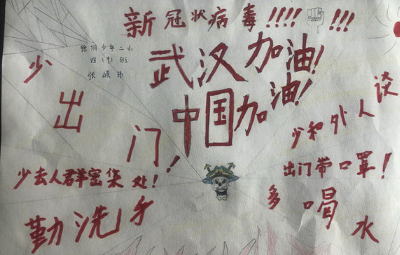 新冠状病毒!!!! !!!
武汉加油!
中国加油!
少出门!
少和外人谈
少去人群密集处!
出门带口罩!
勤洗手
多喝水